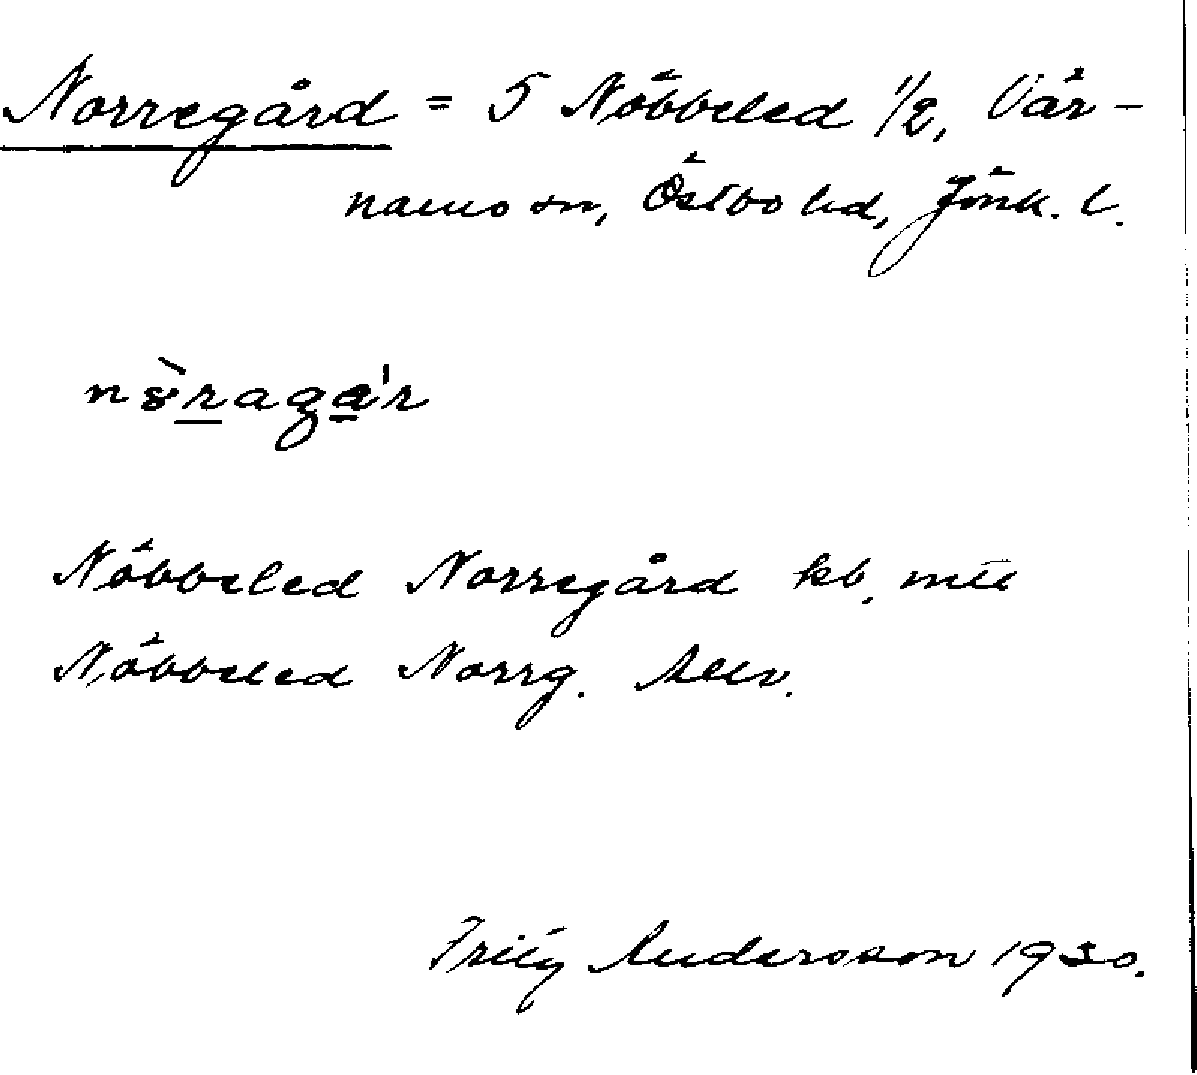 Norregård = 5 Nöbbeled 1/2, Vär-
namo sn, Östbo hd, Jönk. l.
Nöbbeled Norregård kb.
Nöbbeled Norrg.
Andersson 1930.